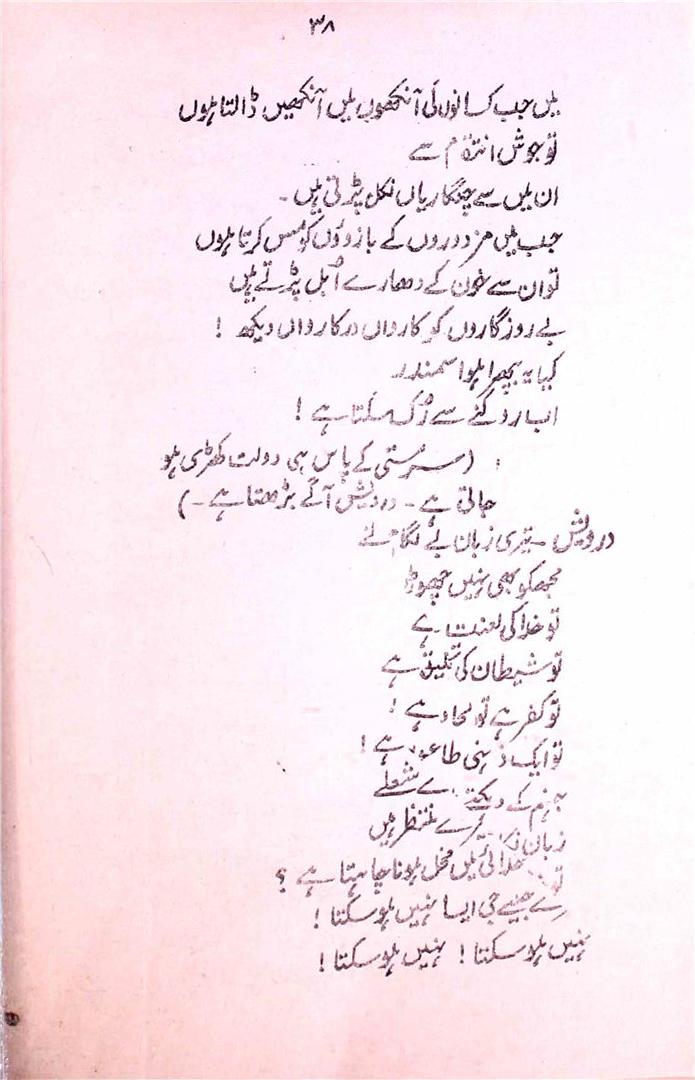 ۳۸
میں جب کسانوں کی آنکھوں میں آنکھیں ڈالتا ہوں
تو جوش انتقام سے
ان میں سے چنگاریاں نکل پڑتی ہیں۔
جب میں مزدوروں کے بازوؤں کو مس کرتا ہوں
تو ان سے خون کے دھارے اُبل پڑتے ہیں
بے روزگاروں کو کارواں در کارواں دیکھ !
کیا یہ بپھرا ہوا سمندر
اب روکنے سے رُک سکتا ہے !
( سرمستی کے پاس ہی دولت کھڑی ہو
جاتی ہے۔ درویش آگے بڑھتا ہے۔)
درویش ۔ تیری زبان بے لگام نے
مجھکو بھی نہیں چھوڑا
تو خدا کی لعنت ہے
تو شیطان کی تخلیق ہے
تو کفر ہے تو الحاد ہے !
تو ایک ذہنی طاعون ہے !
جہنم کے دہکتے شعلے
زبان منتظر ہیں
تو خدائی میں مخل ہونا چاہتا ہے ؟
جیتے جی ایسا نہیں ہو سکتا !
نہیں ہو سکتا ! نہیں ہو سکتا !